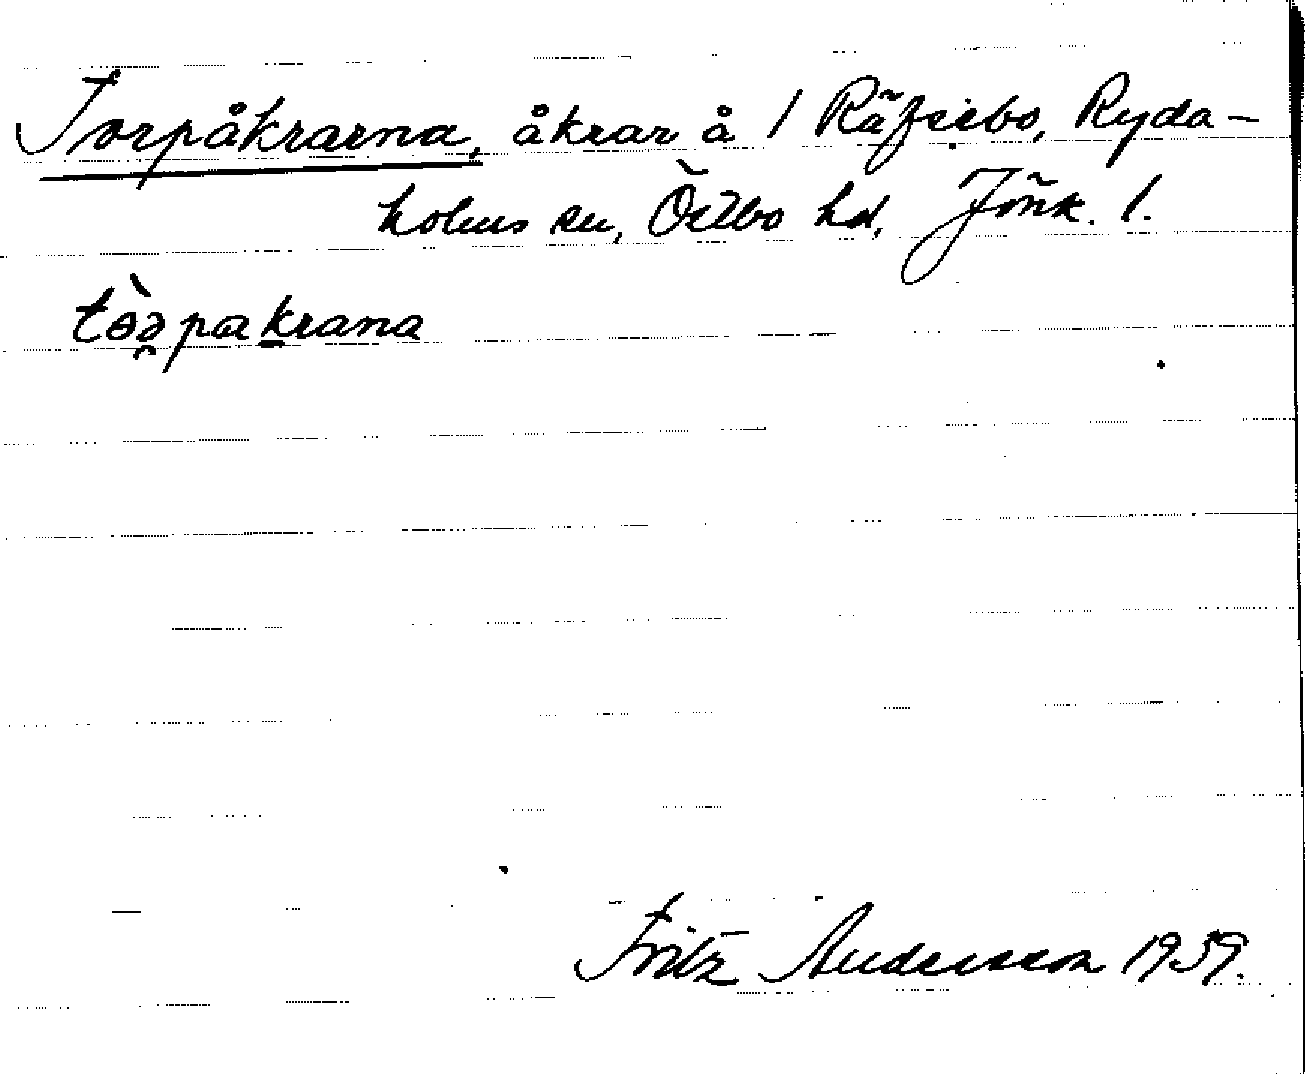 Torpåkrarna, åkrar å 1 Räfsebo, Ryda-
holms sn, Östbo hd, Jönk. l.
Fritz Andersson 1939.